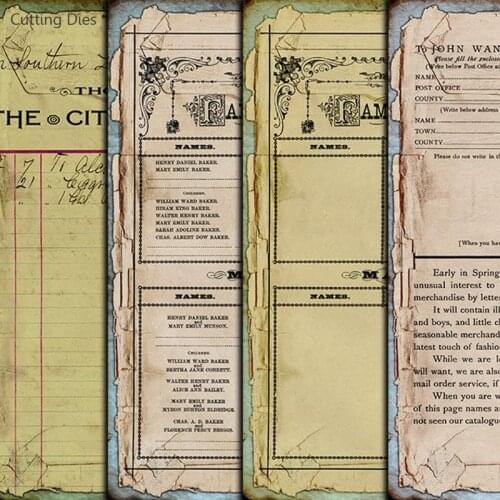 Cutting Dies
Southern
THO
THE CIT
7 To
21
FA
NAMES.
HENRY DANIEL BAKER.
MARY EMILY BAKER.
CHILDREN.
WILLIAM WARD BAKER.
HIRAM KING BAKER.
WALTER HENRY BAKER.
MARY EMILY BAKER.
SARAH ADOLINE BAKER.
CHAS. ALBERT DOW BAKER.
M
NAMES.
HENRY DANIEL BAKER
and
MARY EMILY MUNSON.
CHILDREN.
WILLIAM WARD BAKER
and
BERTHA JANE CORBETT.
WALTER HENRY BAKER
and
ALICE ANN BAILEY.
MARY EMILY BAKER
and
MYRON BURTON ELDRIDGE.
CHAS. A. D. BAKER
and
FLORENCE PERCY BRIGGS.
FAM
NAMES.
MA
NAMES.
To JOHN WAN
Please fill the enclose
(Write below Post Office ad
NAME
POST OFFICE
COUNTY
(Write below address
NAME
TOWN
COUNTY
Please do not write in t
[When you hav
Early in Spring
unusual interest to
merchandise by lette
It will contain ill
and boys, and little c
seasonable merchand
latest touch of fashio
While we are le
will want, we are also
mail order service, if
When you are w
of this page names an
not seen our catalogu